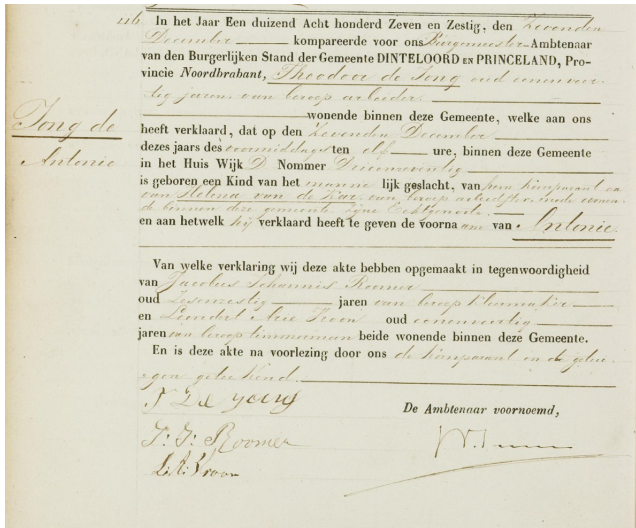 116. In het Jaar Een duizend Acht honderd Zeven en Zestig, den Zevenden
December kompareerde voor ons Burgemeester Ambtenaar
van den Burgerlijken Stand der Gemeente DINTELOORD EN PRINCELAND, Pro-
vincie Noordbrabant, Theodoor de Jong oud eenenveer-
tig jaren, van beroep arbeider
wonende binnen deze Gemeente, welke aan ons
Jong de
heeft verklaard, dat op den Zevenden December
Antonie
dezes jaars des voormiddags ten elf ure, binnen deze Gemeente
in het Huis Wijk D Nommer
is geboren een Kind van het manne lijk geslacht, van hem komparant en
van Helena van de Kar, van beroep arbeidster, mede wonen-
de binnen deze gemeente zijne Echtgenoote.
en aan hetwelk hij verklaard heeft te geven de voorna am van Antonie.
Van welke verklaring wij deze akte hebben opgemaakt in tegenwoordigheid
van Jacobus Johannis Roomer
oud zesenzestig jaren van beroep kleermaker
en Leendert Arie Kroon oud eenenveertig
jaren van beroep timmerman beide wonende binnen deze Gemeente.
En is deze akte na voorlezing door ons de komparant en de getui-
gen geteekend.
T De Jong
De Ambtenaar voornoemd,
J: J: Roomer
L: A: Kroon